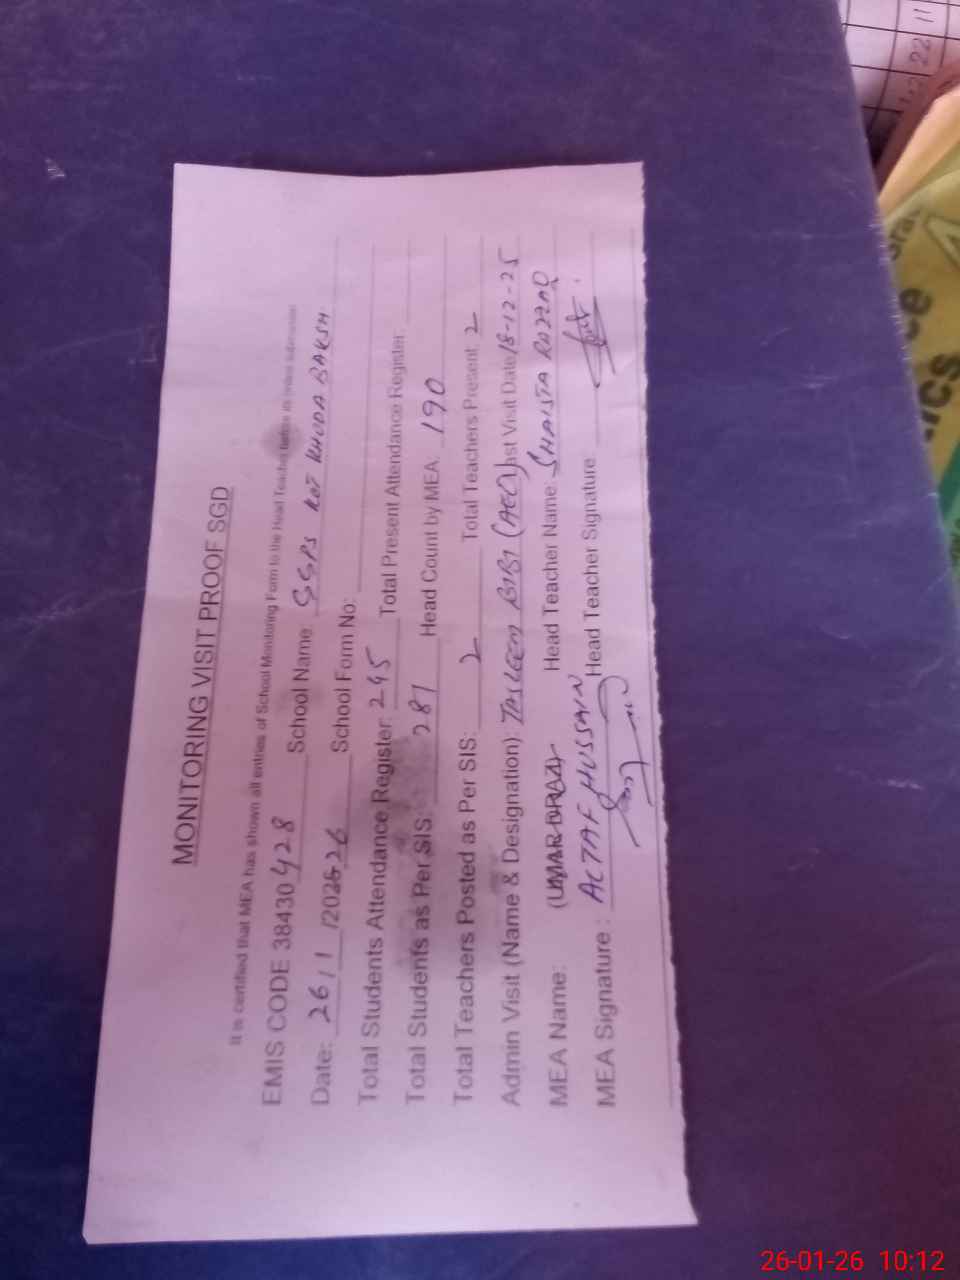 MONITORING VISIT PROOF SGD
It is certified that MEA has shown all entries of School Monitoring Form to the Head Teacher before its online submission
EMIS CODE 38430428 School Name: GGPS KOT KHUDA BAKSH
Date: 26/1/2026 School Form No:
Total Students Attendance Register: 245 Total Present Attendance Register:
Total Students as Per SIS: 281 Head Count by MEA: 190
Total Teachers Posted as Per SIS: 2 Total Teachers Present: 2
Admin Visit (Name & Designation): TASLEEM BIBI (AEO) Last Visit Date 18-12-25
MEA Name: (UMAR DRAZ) Head Teacher Name: SHAISTA
ALTAF HUSSAIN
MEA Signature : Head Teacher Signature
22 11
26-01-26 10:12